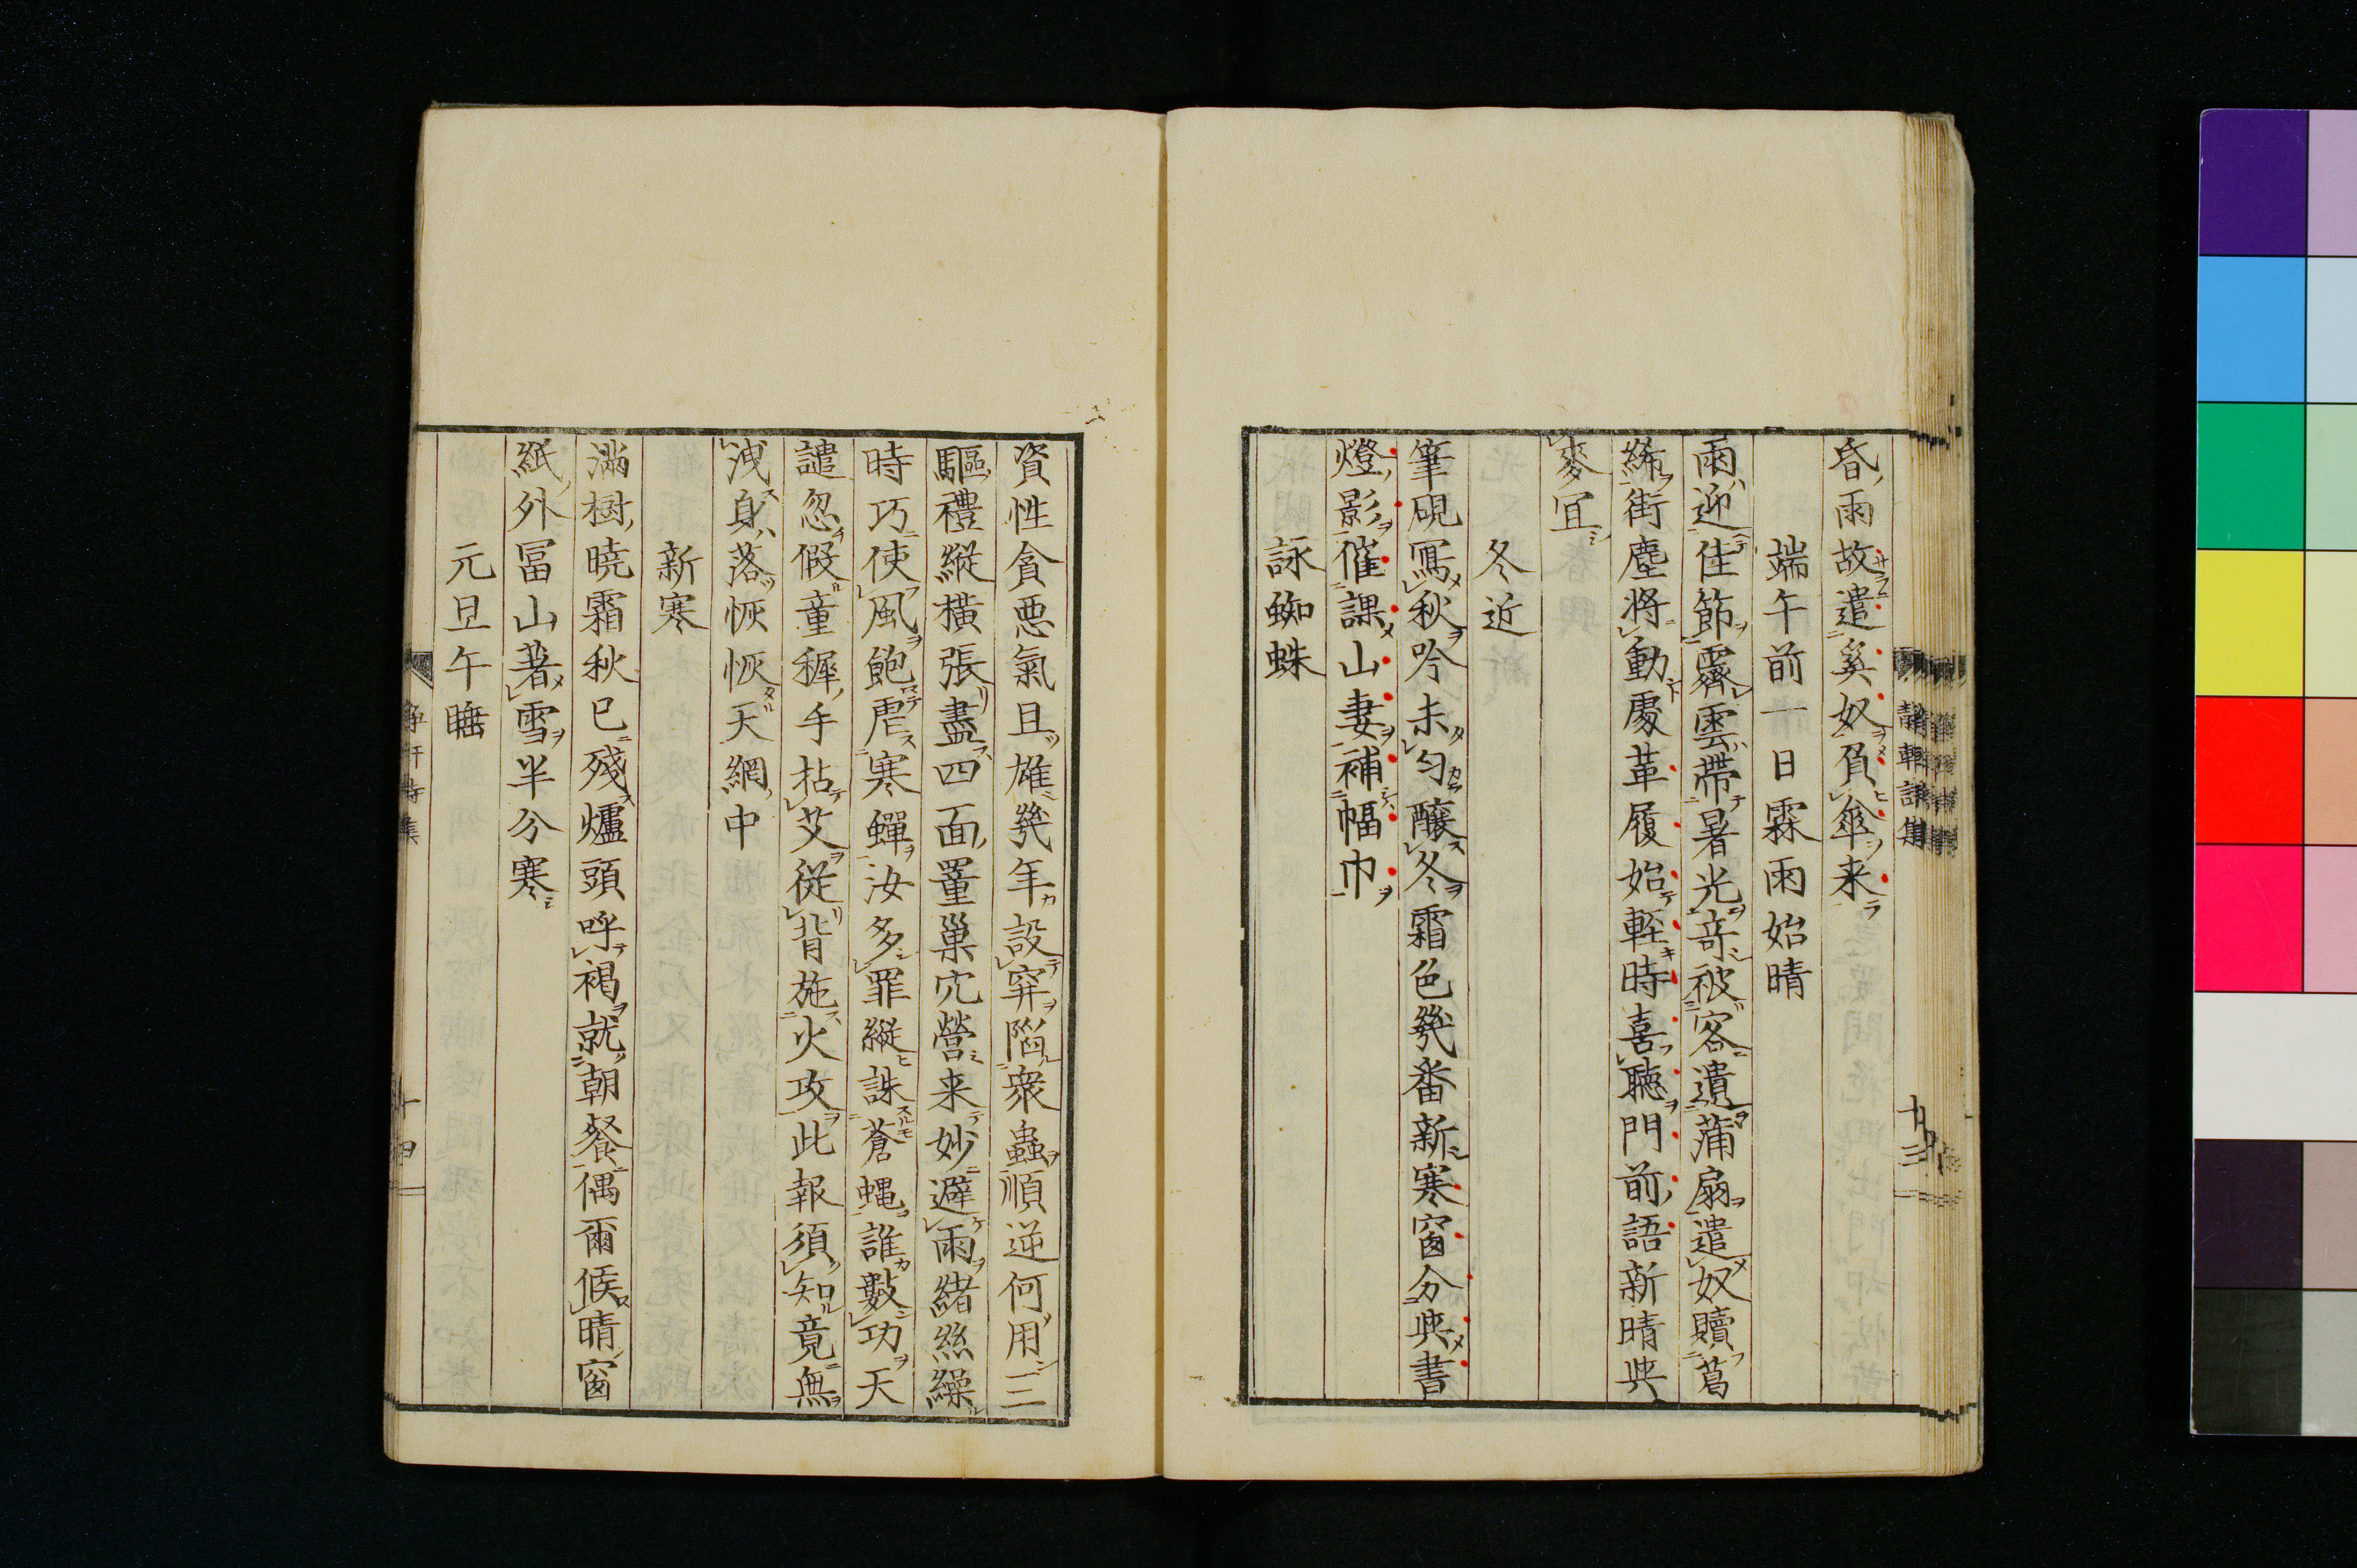 昏雨故遣奚奴負傘来
端午前一日霖雨始晴
雨迎佳節霽雲帶暑光奇被客遺蒲扇遣奴贖葛
絺街塵將動處革履始輕時喜聴門前語新晴與
麥冝
冬近
筆硯寫秋吟未匀釀冬霜色幾番新寒窗分與書
燈影催課山妻補幅巾
詠蜘蛛
資性貪悪氣且雄幾年設穽陷衆蟲順逆何用三
驅禮縱橫張盡四面罿巢穴營来妙避雨緒絲繰
時巧使風飽虐寒蟬汝多罪縱誅蒼蝿誰數功天
譴忽假童穉手拈艾從背施火攻此報須知竟無
洩身落恢恢天網中
新寒
滿樹曉霜秋已殘爐頭呼褐就朝餐偶爾候晴窗
紙外冨山著雪半分寒
元旦午睡
十三